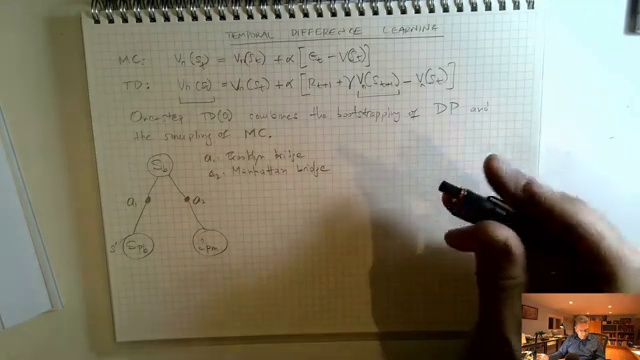 TEMPORAL DIFFERENCE LEARNING
MC: Vπ(St) = Vπ(St) + α [Gt − V(St)]
TD: Vπ(St) = Vπ(St) + α [Rt+1 + γ Vπ(St+1) − Vπ(St)]
One-step TD(0) combines the bootstrapping of DP and
the sampling of MC.
a1: Brooklyn bridge
a2: Manhattan bridge
Sb
a1 a2
s'